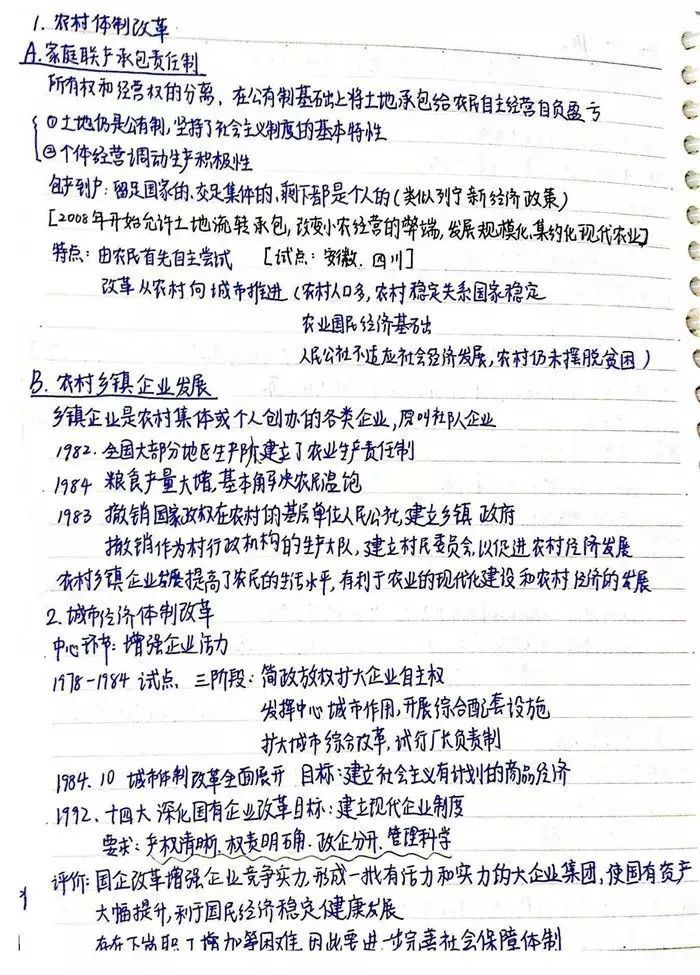 1. 农村体制改革
A.家庭联产承包责任制
所有权和经营权的分离，在公有制基础上将土地承包给农民自主经营自负盈亏
①土地仍是公有制，坚持了社会主义制度的基本特性
②个体经营调动生产积极性
包产到户：留足国家的，交足集体的，剩下都是个人的（类似列宁新经济政策）
[2008年开始允许土地流转承包，改变小农经营的弊端，发展规模化，集约化现代农业]
特点：由农民首先自主尝试 [试点：安徽、四川]
改革从农村向城市推进（农村人口多，农村稳定关系国家稳定
农业国民经济基础
人民公社不适应社会经济发展，农村仍未摆脱贫困）
B. 农村乡镇企业发展
乡镇企业是农村集体或个人创办的各类企业，原叫社队企业
1982.全国大部分地区生产队建立了农业生产责任制
1984 粮食产量大增，基本解决农民温饱
1983 撤销国家政权在农村的基层单位人民公社，建立乡镇政府
撤销作为村行政机构的生产大队，建立村民委员会，以促进农村经济发展
农村乡镇企业发展提高了农民的生活水平，有利于农业的现代化建设和农村经济的发展
2.城市经济体制改革
中心环节：增强企业活力
1978-1984 试点，三阶段：简政放权扩大企业自主权
发挥中心城市作用，开展综合配套设施
扩大城市综合改革，试行厂长负责制
1984.10 城市体制改革全面展开 目标：建立社会主义有计划的商品经济
1992.十四大 深化国有企业改革目标：建立现代企业制度
要求：产权清晰．权责明确．政企分开．管理科学
评价：国企改革增强企业竞争实力，形成一批有活力和实力的大企业集团，使国有资产
大幅提升，利于国民经济稳定健康发展
存在下岗职工增加等困难，因此要进一步完善社会保障体制